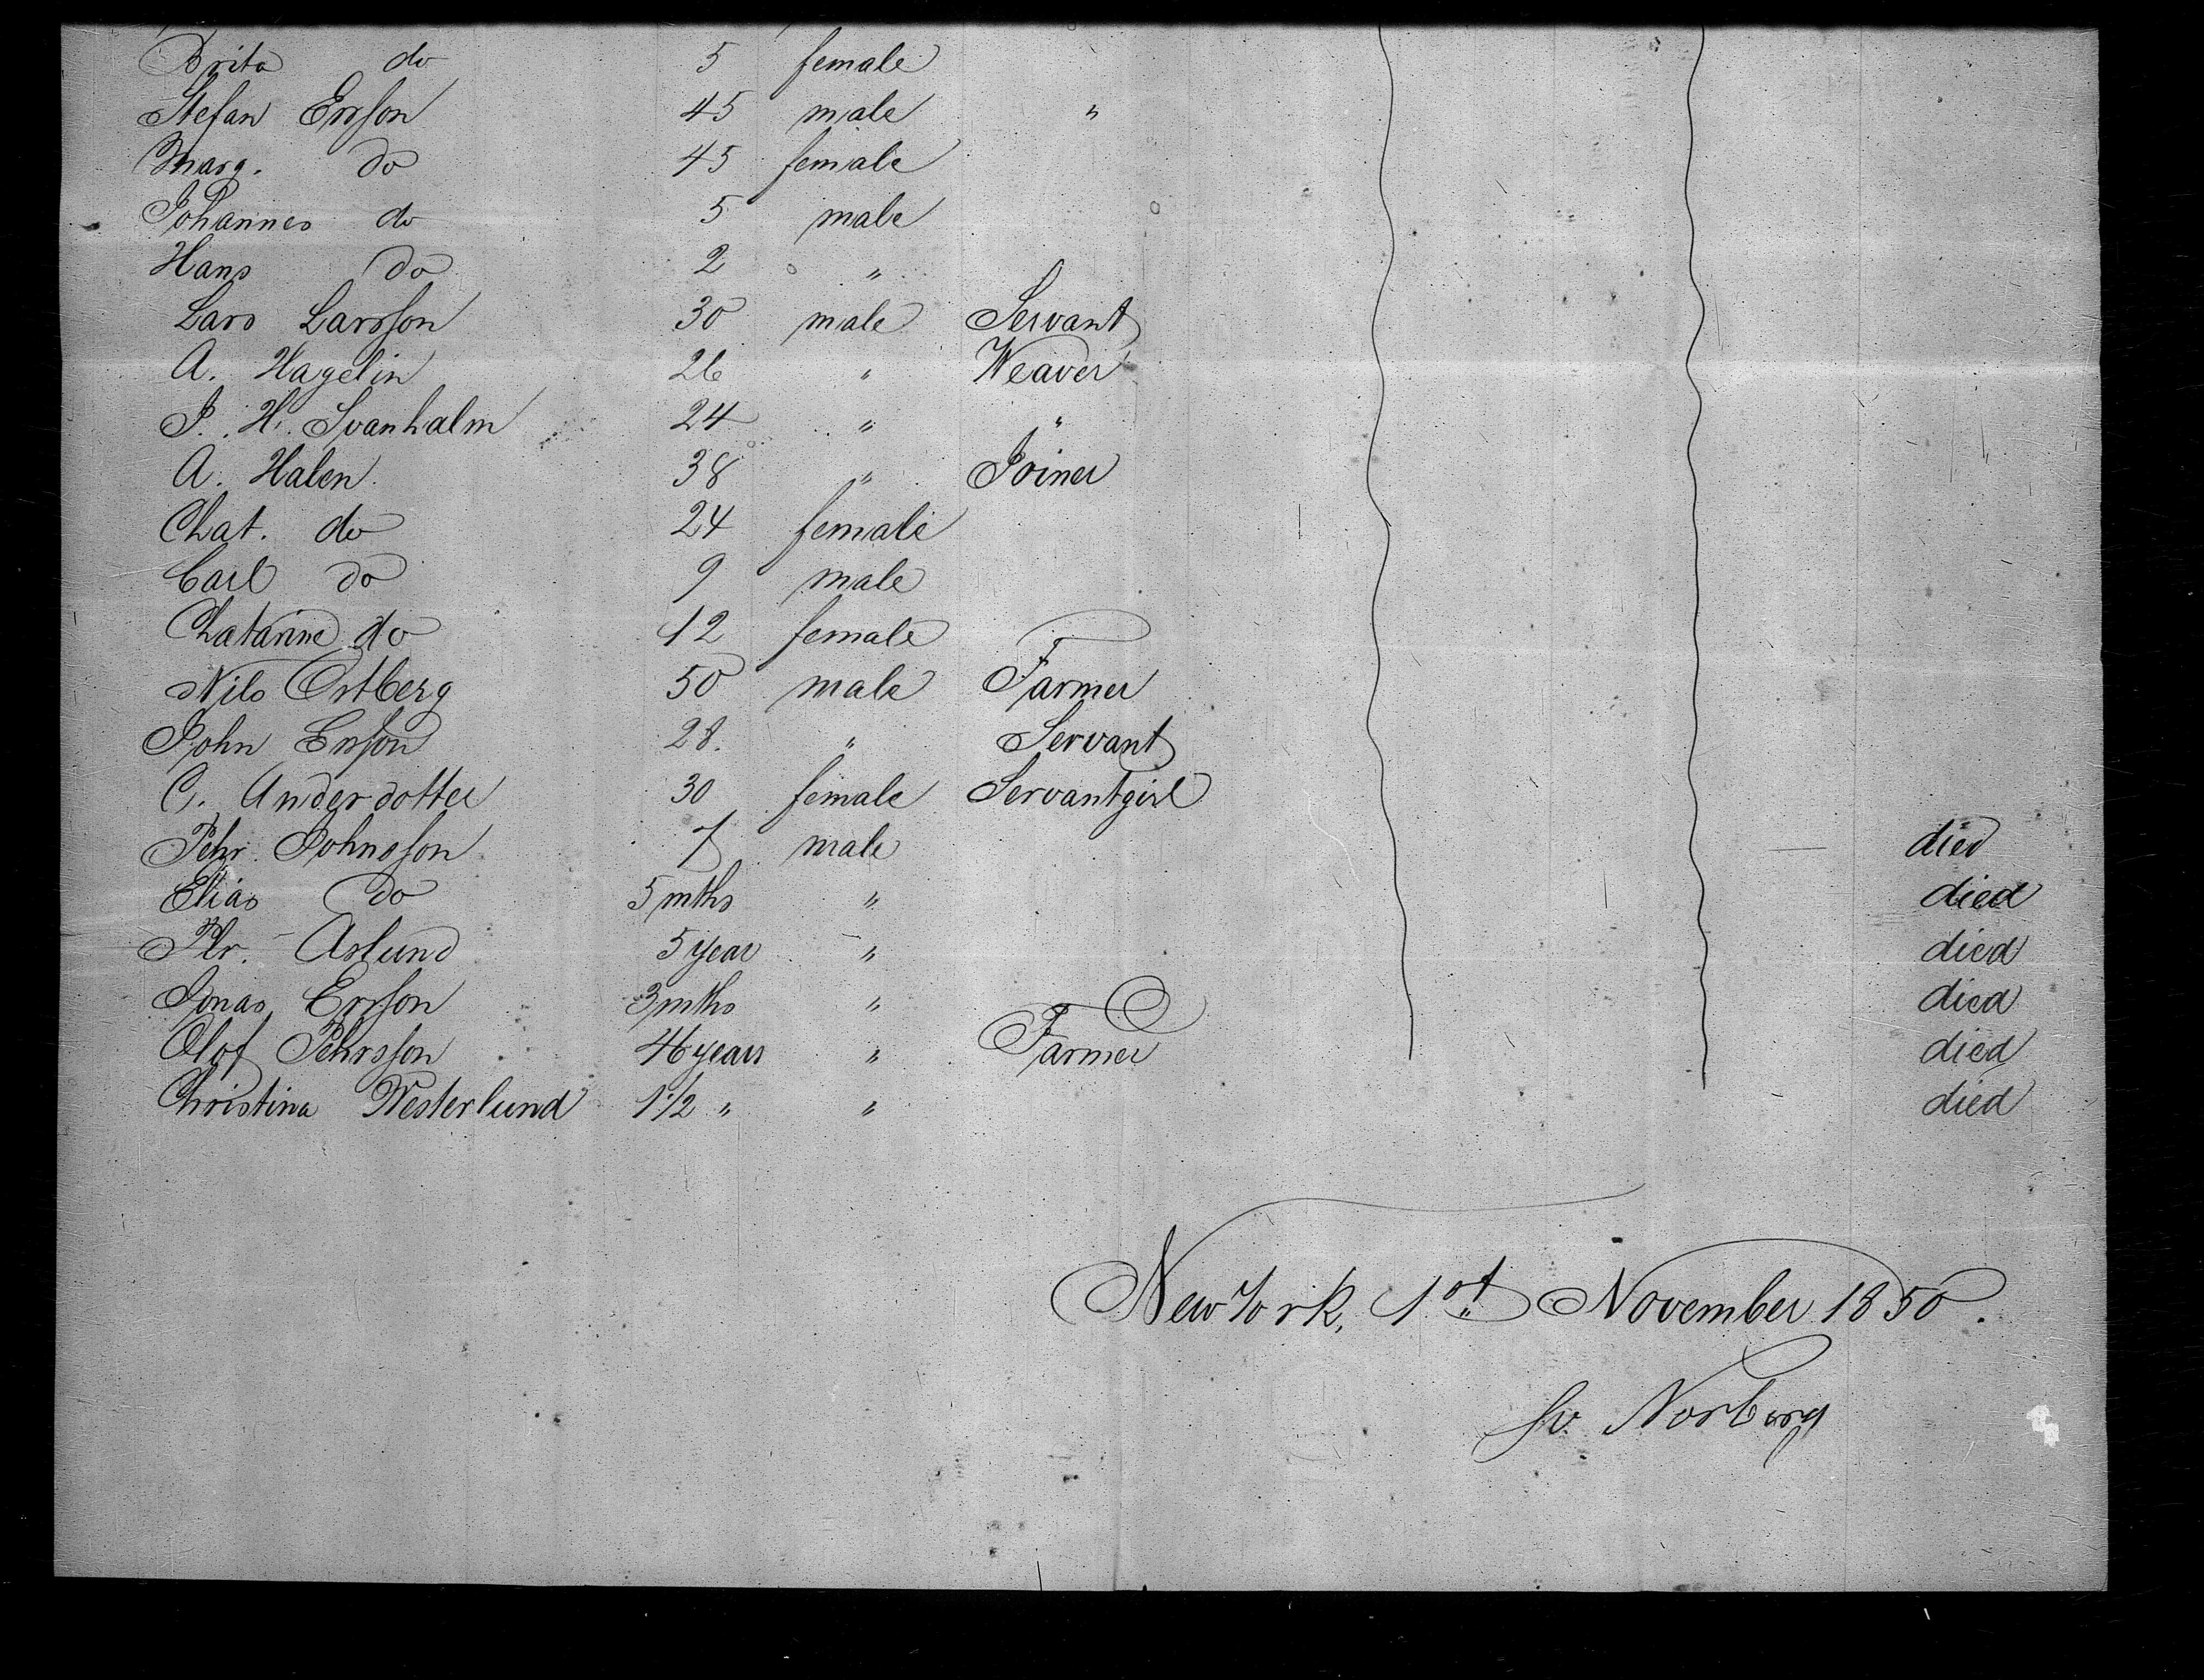 Brita do 5 female
Stefan Ersson 45 male "
Marg. do 45 female
Johannes do 5 male
Hans do 2 "
Lars Larsson 30 male Servant
A. Hagelin 26 " Weaver
P. H. Svanhalm 24 " "
A. Halen 38 " Joiner
Chat. do 24 female
Carl do 9 male
Chatarine do 12 female
Nils Ostberg 50 male Farmer
John Ersson 28. " Servant
C. Andersdotter 30 female Servantgirl
Pehr Johnsson 7 male died
Elias do 5 mths " died
Aslund 5 year " died
Jonas Ersson 3 mths " died
Olof Pehrsson 46 years " Farmer died
Christina Westerlund 1 1/2 " " died
New York, 1st November 1850.
Sv. Norberg